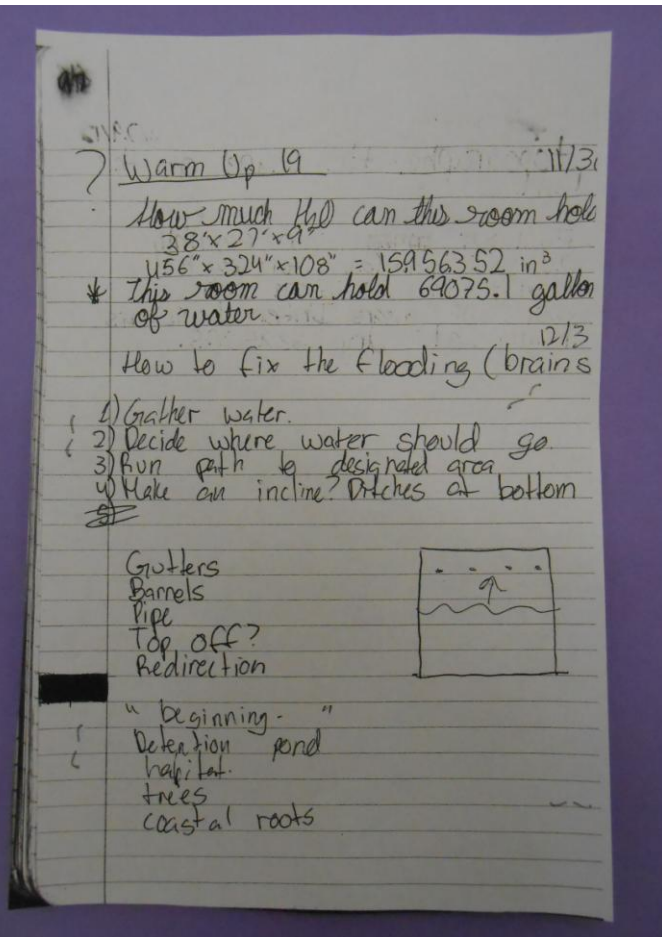 ? Warm Up 19 11/3
How much H2O can this room hol
38'x27'x9'
456"x 324"x108" = 15956352 in³
* This room can hold 69075.1 gallon
of water.
12/3
How to fix the flooding (brains
1) Gather water.
2) Decide where water should go.
3) Run path to designated area
4) Make an incline? Ditches at bottom
Gutters
Barrels
Pipe
Top off?
Redirection
" beginning- "
Detention pond
habitat.
trees
coastal roots